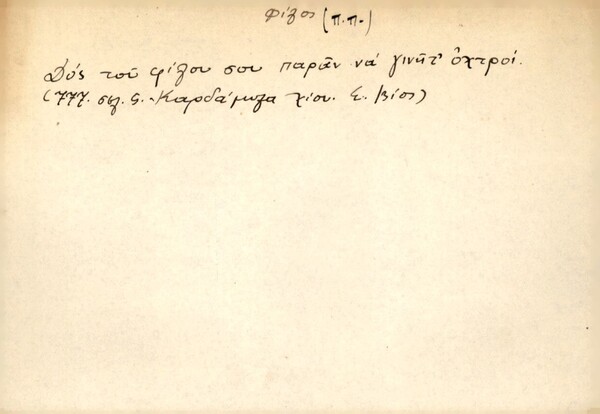 Φίλος (π.π.)
Δός τοῦ φίλου σου παρᾶν νά γινῆτ' ὀχτροί.
(777. σελ. 5. Καρδάμυλα Χίου. Σ. Βίος)